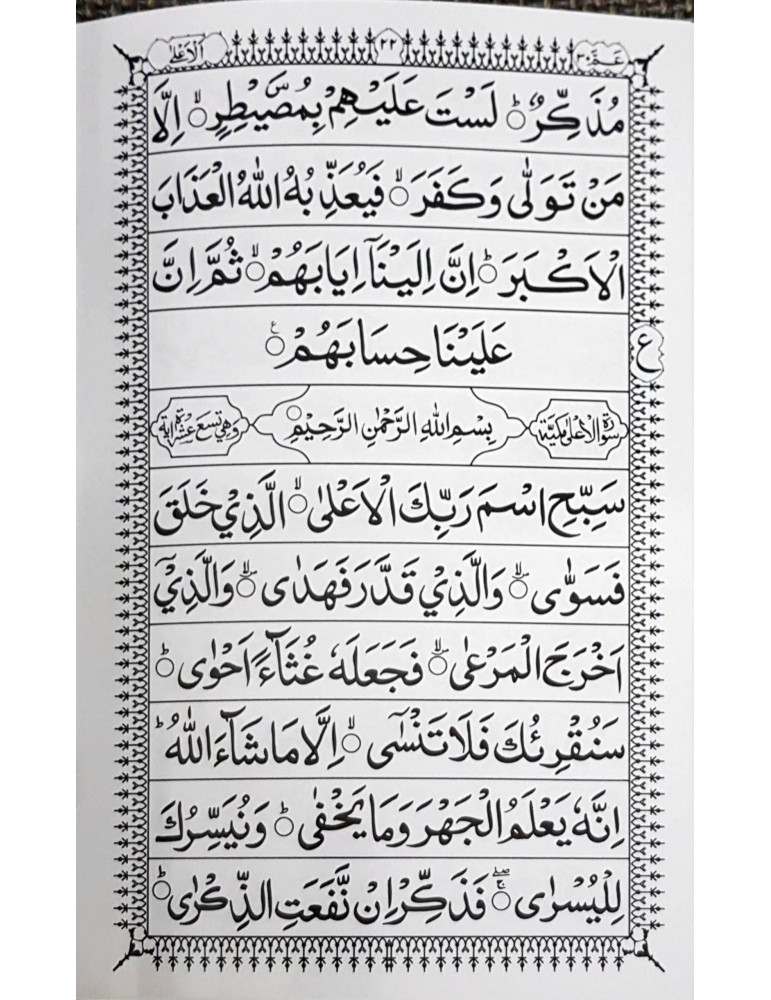 عَمَّ ٣٠ ٢٢ الاعلى
مُذَكِّرٌ ؕ لَسْتَ عَلَيْهِمْ بِمُصَۜيْطِرٍ ۙ اِلَّا
مَنْ تَوَلّٰى وَكَفَرَ ۙ فَيُعَذِّبُهُ اللّٰهُ الْعَذَابَ
الْاَكْبَرَ ؕ اِنَّ اِلَيْنَاۤ اِيَابَهُمْ ۙ ثُمَّ اِنَّ
عَلَيْنَا حِسَابَهُمْ ع
سورة الاعلى مكية بِسْمِ اللّٰهِ الرَّحْمٰنِ الرَّحِيْمِ وهي تسع عشرة اية
سَبِّحِ اسْمَ رَبِّكَ الْاَعْلٰى ۙ الَّذِيْ خَلَقَ
فَسَوّٰى ۙ وَالَّذِيْ قَدَّرَ فَهَدٰى ۙ وَالَّذِيْۤ
اَخْرَجَ الْمَرْعٰى ۙ فَجَعَلَهٗ غُثَآءً اَحْوٰى ؕ
سَنُقْرِئُكَ فَلَا تَنْسٰٓى ۙ اِلَّا مَا شَآءَ اللّٰهُ ؕ
اِنَّهٗ يَعْلَمُ الْجَهْرَ وَمَا يَخْفٰى ؕ وَنُيَسِّرُكَ
لِلْيُسْرٰى ۖۚ فَذَكِّرْ اِنْ نَّفَعَتِ الذِّكْرٰى ؕ